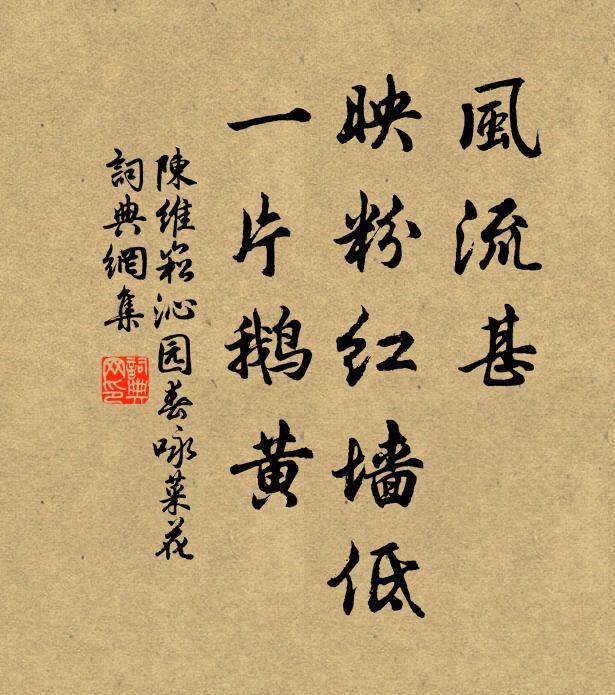 風流甚
映粉红墙低
一片鹅黄
陳維崧沁园春咏菜花
詞典網集
詞典
网印